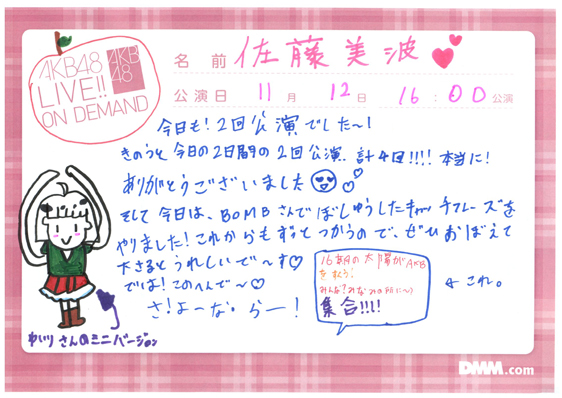 AKB48
LIVE!!
ON DEMAND
AKB
48
名前 佐藤美波
公演日 11月 12日 16:00公演
今日も!2回公演でした〜!
きのうと今日の2日間の2回公演、計4回!!!!本当に!
ありがとうございました
そして今日は、BOMBさんでぼしゅうしたキャッチフレーズを
やりました!これからもずっとつかうので、ぜひおぼえて
下さるとうれしいで〜す♡
では!このへんで〜♡
さ!よーなーらー!
16期の太陽がAKB
を救う!
みんな?みなみの所に〜)
集合!!!
← これ。
ゆいりさんのミニバージョン
DMM.com